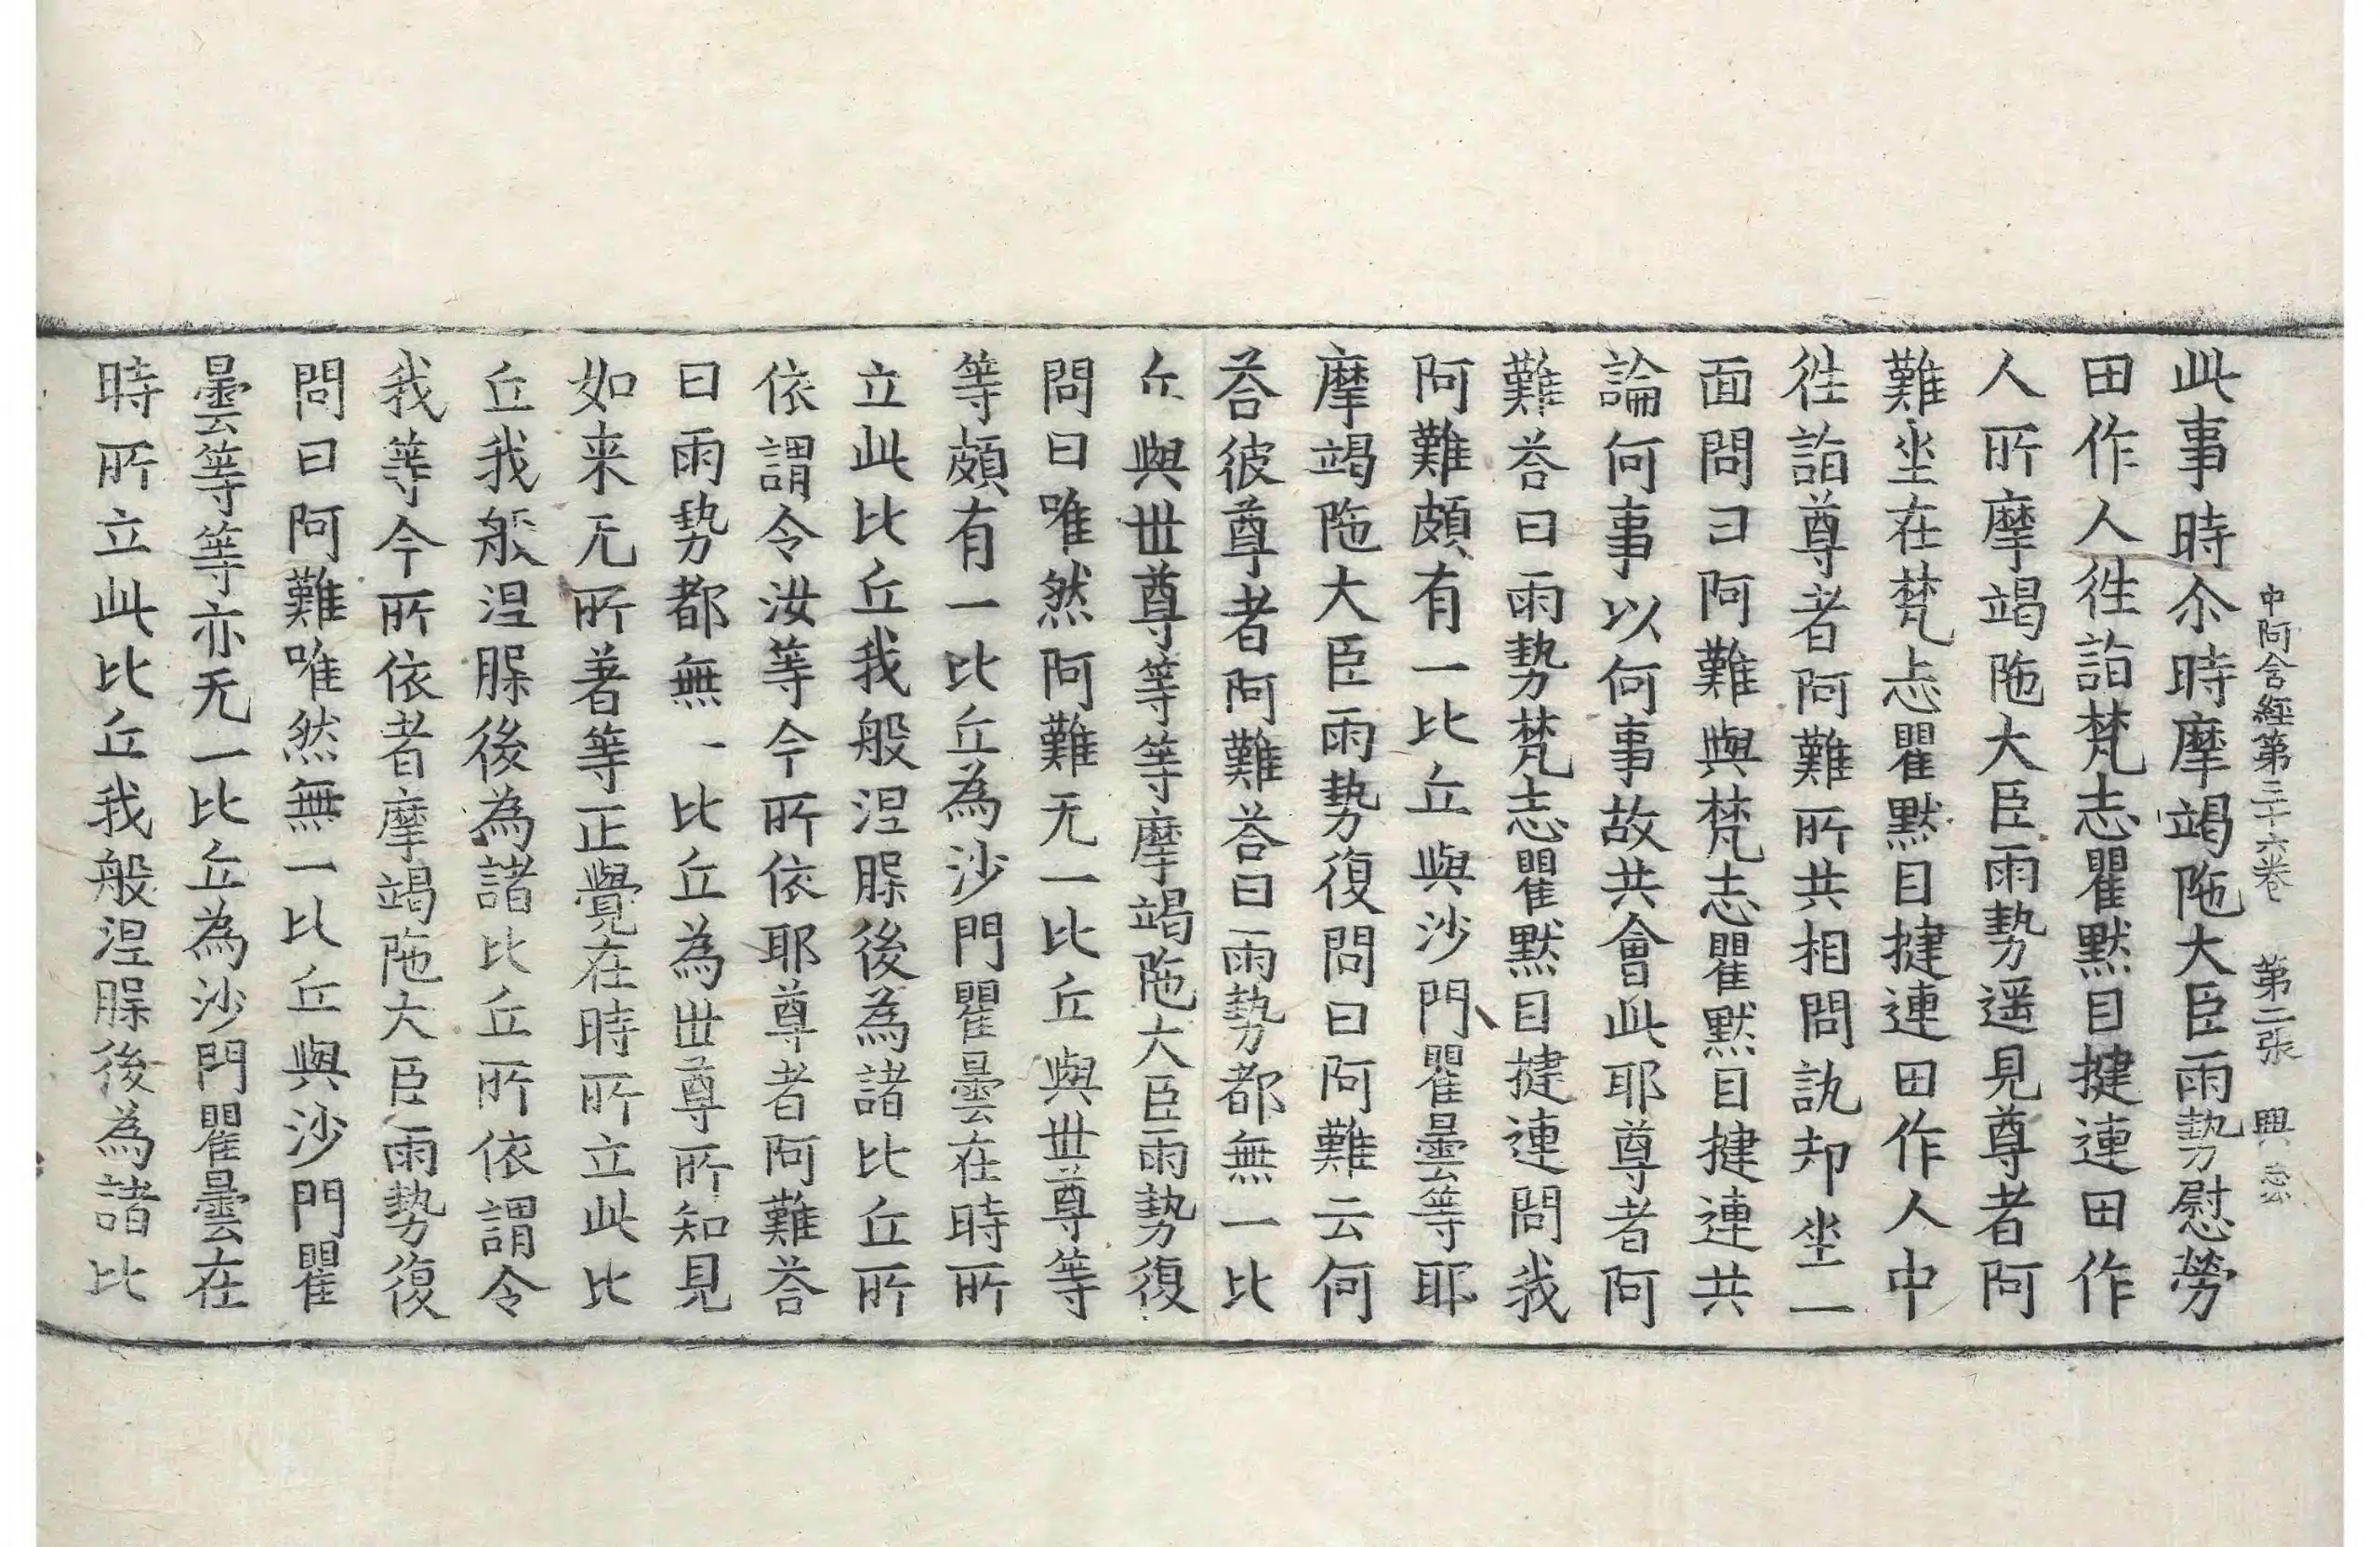 中阿含經第三十六卷 第二張 興
此事時尒時摩竭陁大臣雨勢慰勞
田作人徃詣梵志瞿默目揵連田作
人所摩竭陁大臣雨勢遥見尊者阿
難坐在梵志瞿默目揵連田作人中
徃詣尊者阿難所共相問訊却坐一
面問曰阿難與梵志瞿默目揵連共
論何事以何事故共會此耶尊者阿
難荅曰雨勢梵志瞿默目揵連問我
阿難頗有一比丘與沙門瞿曇等耶
摩竭陁大臣雨勢復問曰阿難云何
荅彼尊者阿難荅曰雨勢都無一比
丘與世尊等等摩竭陁大臣雨勢復
問曰唯然阿難无一比丘與世尊等
等頗有一比丘為沙門瞿曇在時所
立此比丘我般涅槃後為諸比丘所
依謂令汝等今所依耶尊者阿難荅
曰雨勢都無一比丘為世尊所知見
如来无所著等正覺在時所立此比
丘我般涅槃後為諸比丘所依謂令
我等今所依者摩竭陁大臣雨勢復
問曰阿難唯然無一比丘與沙門瞿
曇等等亦无一比丘為沙門瞿曇在
時所立此比丘我般涅槃後為諸比